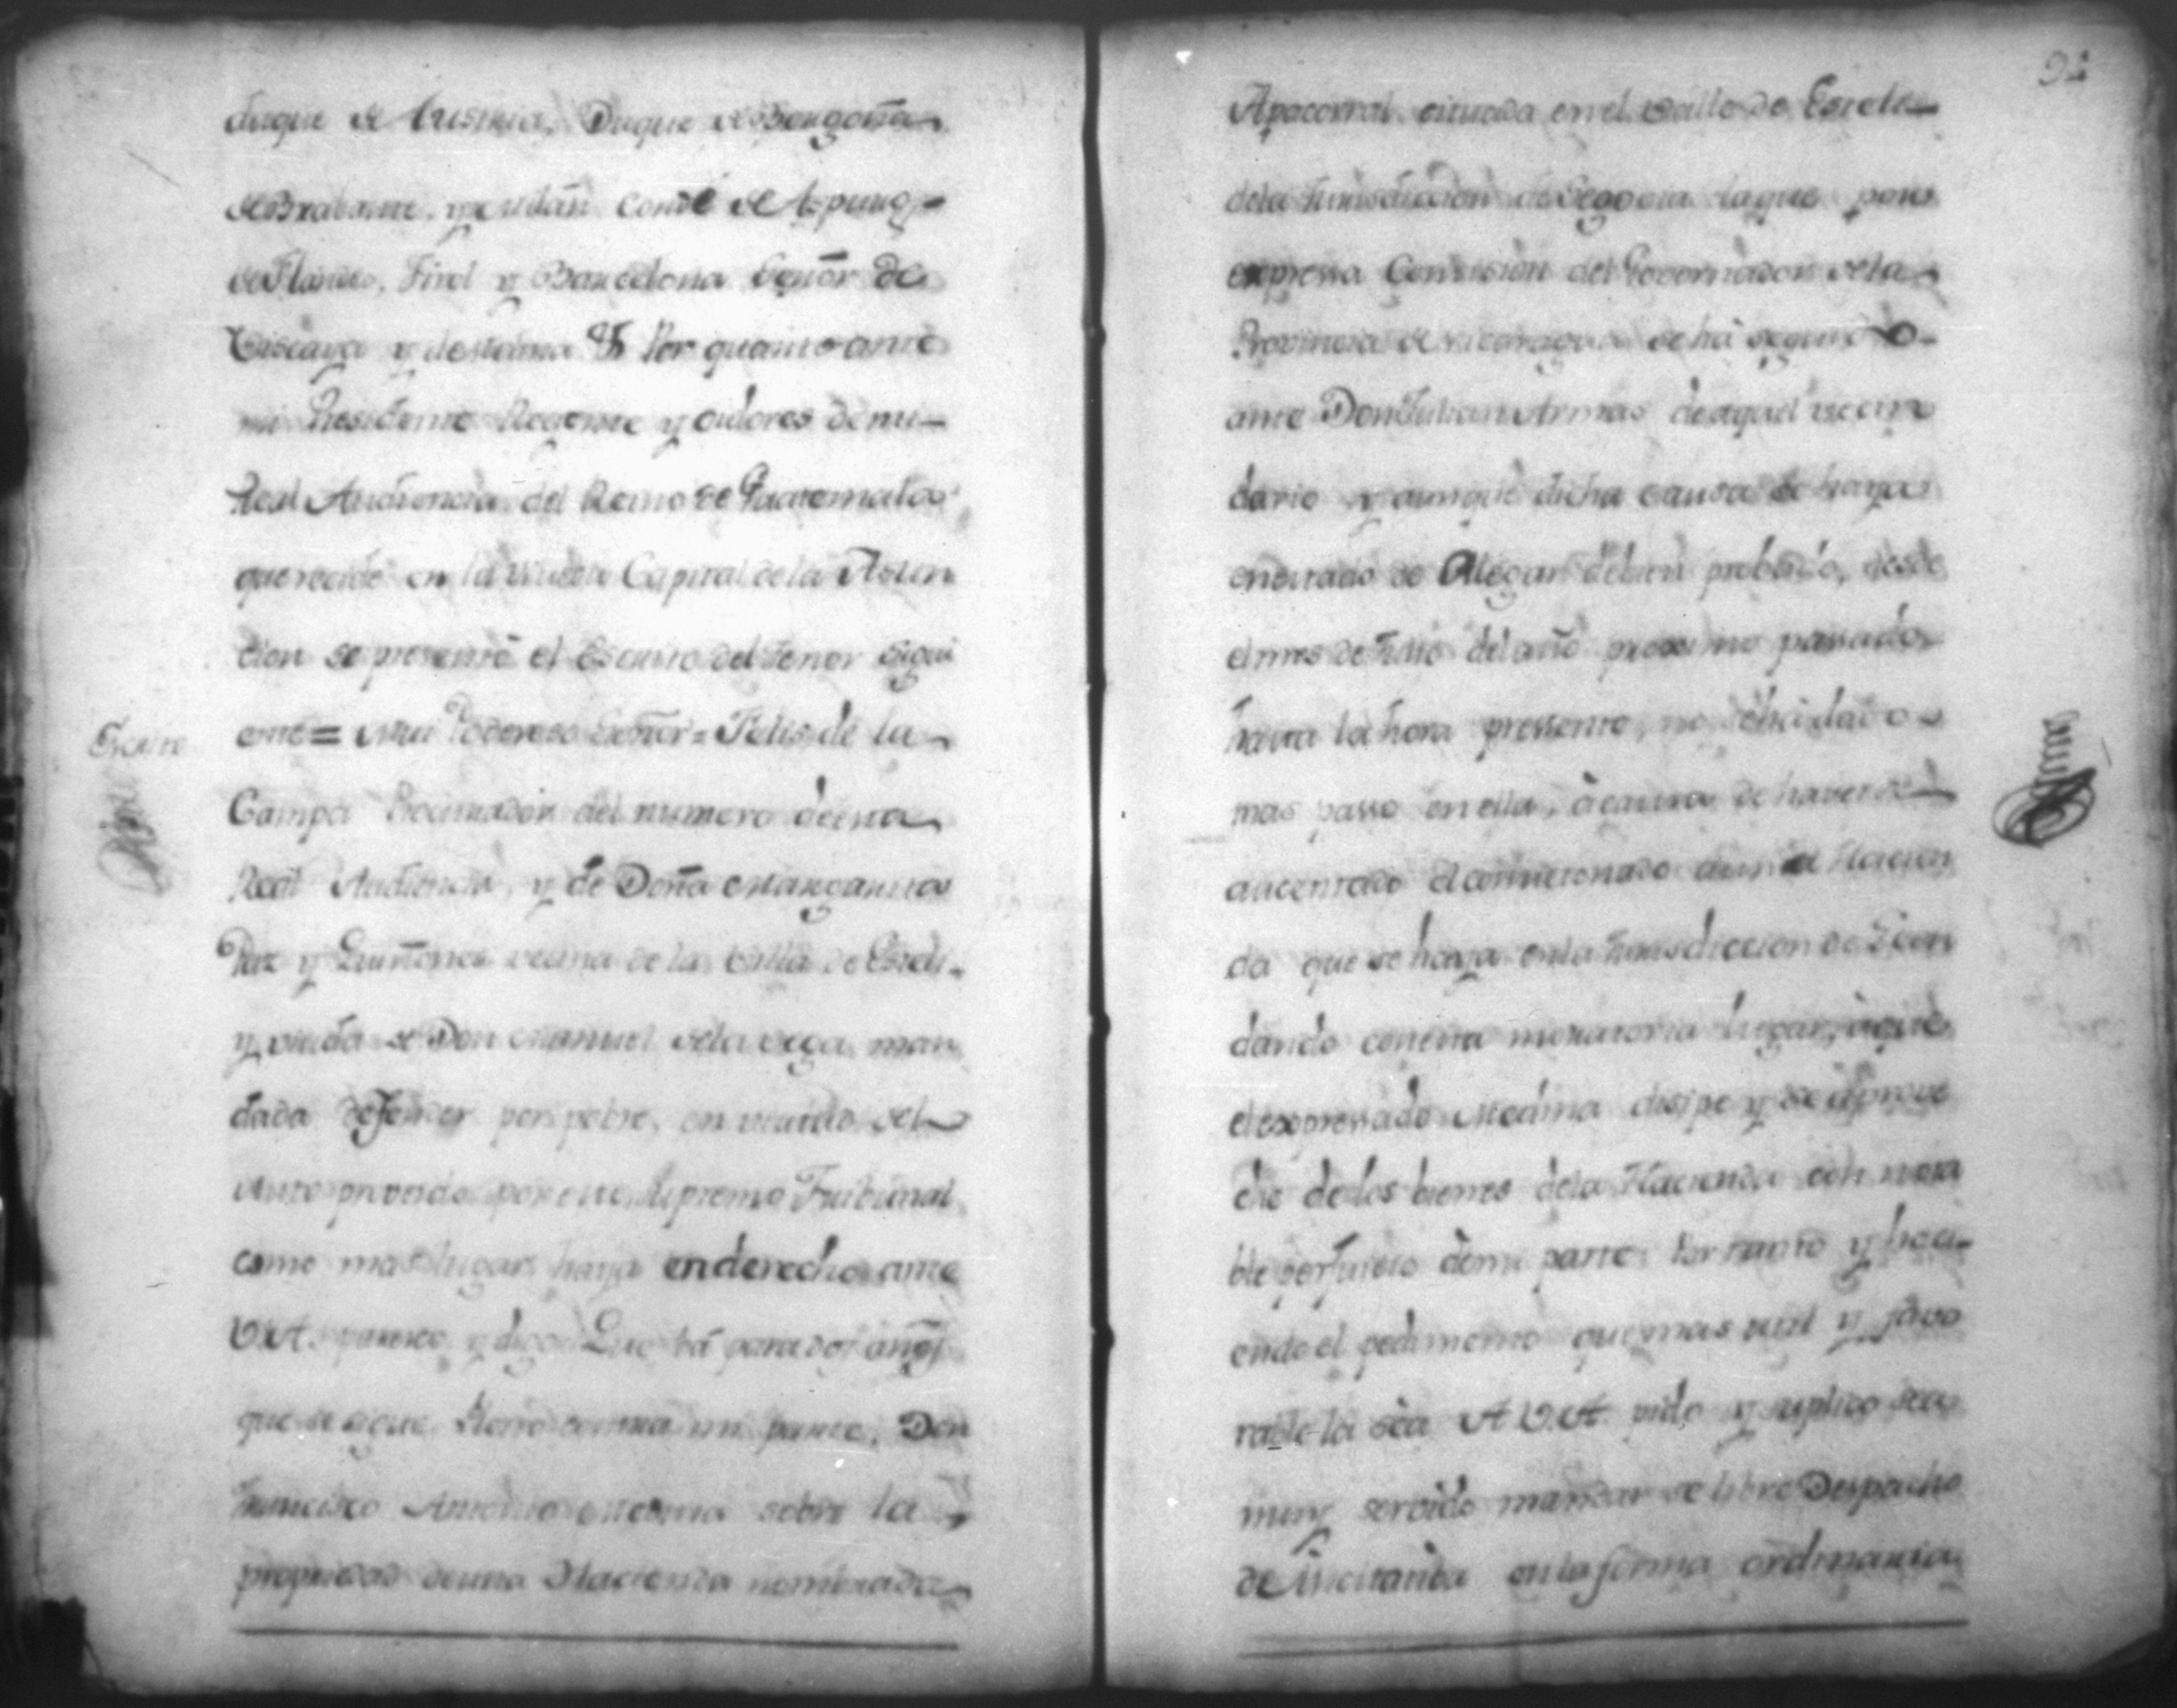 duque de Austria, Duque de Borgoña
de Brabante, y Milán Conde de Aspurg-
de Flandes, Tirol y Barcelona Señor de
Viscaya y de Molina &a Por quanto ante
mi Presidente Regente y oidores de mi-
Real Audiencia del Reino de Guatemala
que recide en la nueva Capital de la Asun
cion se presentó el Escrito del tenor sigui
Escrito
ente = Muy Poderoso Señor = Felis de la
Campa Procurador del numero de esta
Real Audiencia, y de Doña Margarita
Paz y Quiñones vecina de la Villa de Esteli-
y viuda de Don Manuel de la Vega man
dada defender por pobre, en virtud del
Auto proveido por este Supremo Tribunal
como mas lugar haya en derecho ante
V.A. paresco y digo: Que há para dos años
que se sigue Pleito contra mi parte, Don
Francisco Antonio Medina sobre la
propiedad de una Hacienda nombrada
92
Apacorral, cituada en el Valle de Esteli-
de la Jurisdiccion de Segovia la que por
expresa Comision del Governador de la
Provincia de Nicaragua se há seguido
ante Don Julian Armas de aquel vecin
dario y aunque dicha causa se haya
en estado de Alegar de bien probado, desde
el mes de Julio del año proximo passado
hasta la hora pressente, no se ha dado
mas passo en ella, à causa de haverse
aucentado el comicionado à una Hacien
da que se haya en la Jurisdiccion de Leon
dando con esta moratoria lugar, à que
el expressado Medina disipe y se aprove
che de los bienes de la Hacienda con nota
ble perjuicio de mi parte. Por tanto y haci-
endo el pedimento que mas util y favo
rable la sea A V.A. pido y suplico sea
muy servido mandar se libre Despacho
de Incitativa en la forma ordinaria